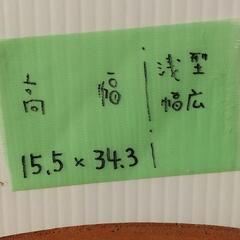 高 幅
15.5 × 34.3
浅型
幅広